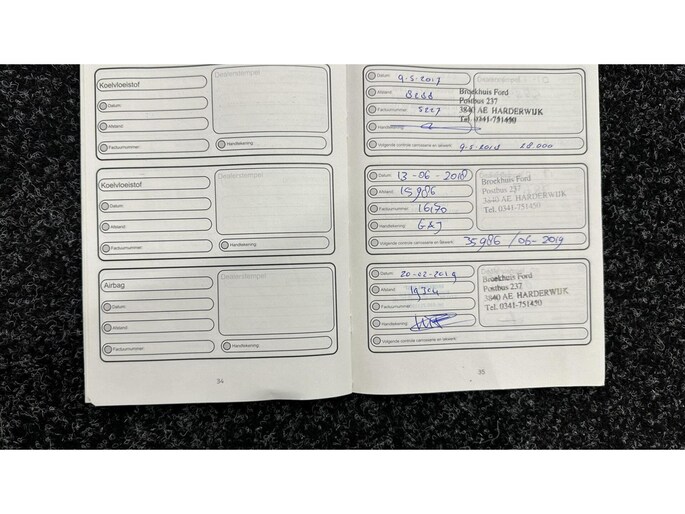 Koelvloeistof
Dealerstempel
Datum:
Afstand:
Factuurnummer:
Handtekening:
Koelvloeistof
Dealerstempel
Datum:
Afstand:
Factuurnummer:
Handtekening:
Airbag
Dealerstempel
Datum:
Afstand:
Factuurnummer:
Handtekening:
34
Datum: 9-5-2017
Afstand:
Factuurnummer: 5227
Handtekening:
Broekhuis Ford
Postbus 237
3840 AE HARDERWIJK
Tel. 0341-751450
Volgende controle carrosserie en lakwerk: 9-5-2018 28.000
Datum: 13-06-2018
Afstand: 15986
Factuurnummer: 16170
Handtekening:
Broekhuis Ford
Postbus 237
3840 AE HARDERWIJK
Tel. 0341-751450
Volgende controle carrosserie en lakwerk: 35986 / 06-2019
Datum: 20-02-2019
Afstand: 19304
Factuurnummer:
Handtekening:
Broekhuis Ford
Postbus 237
3840 AE HARDERWIJK
Tel. 0341-751450
Volgende controle carrosserie en lakwerk:
35